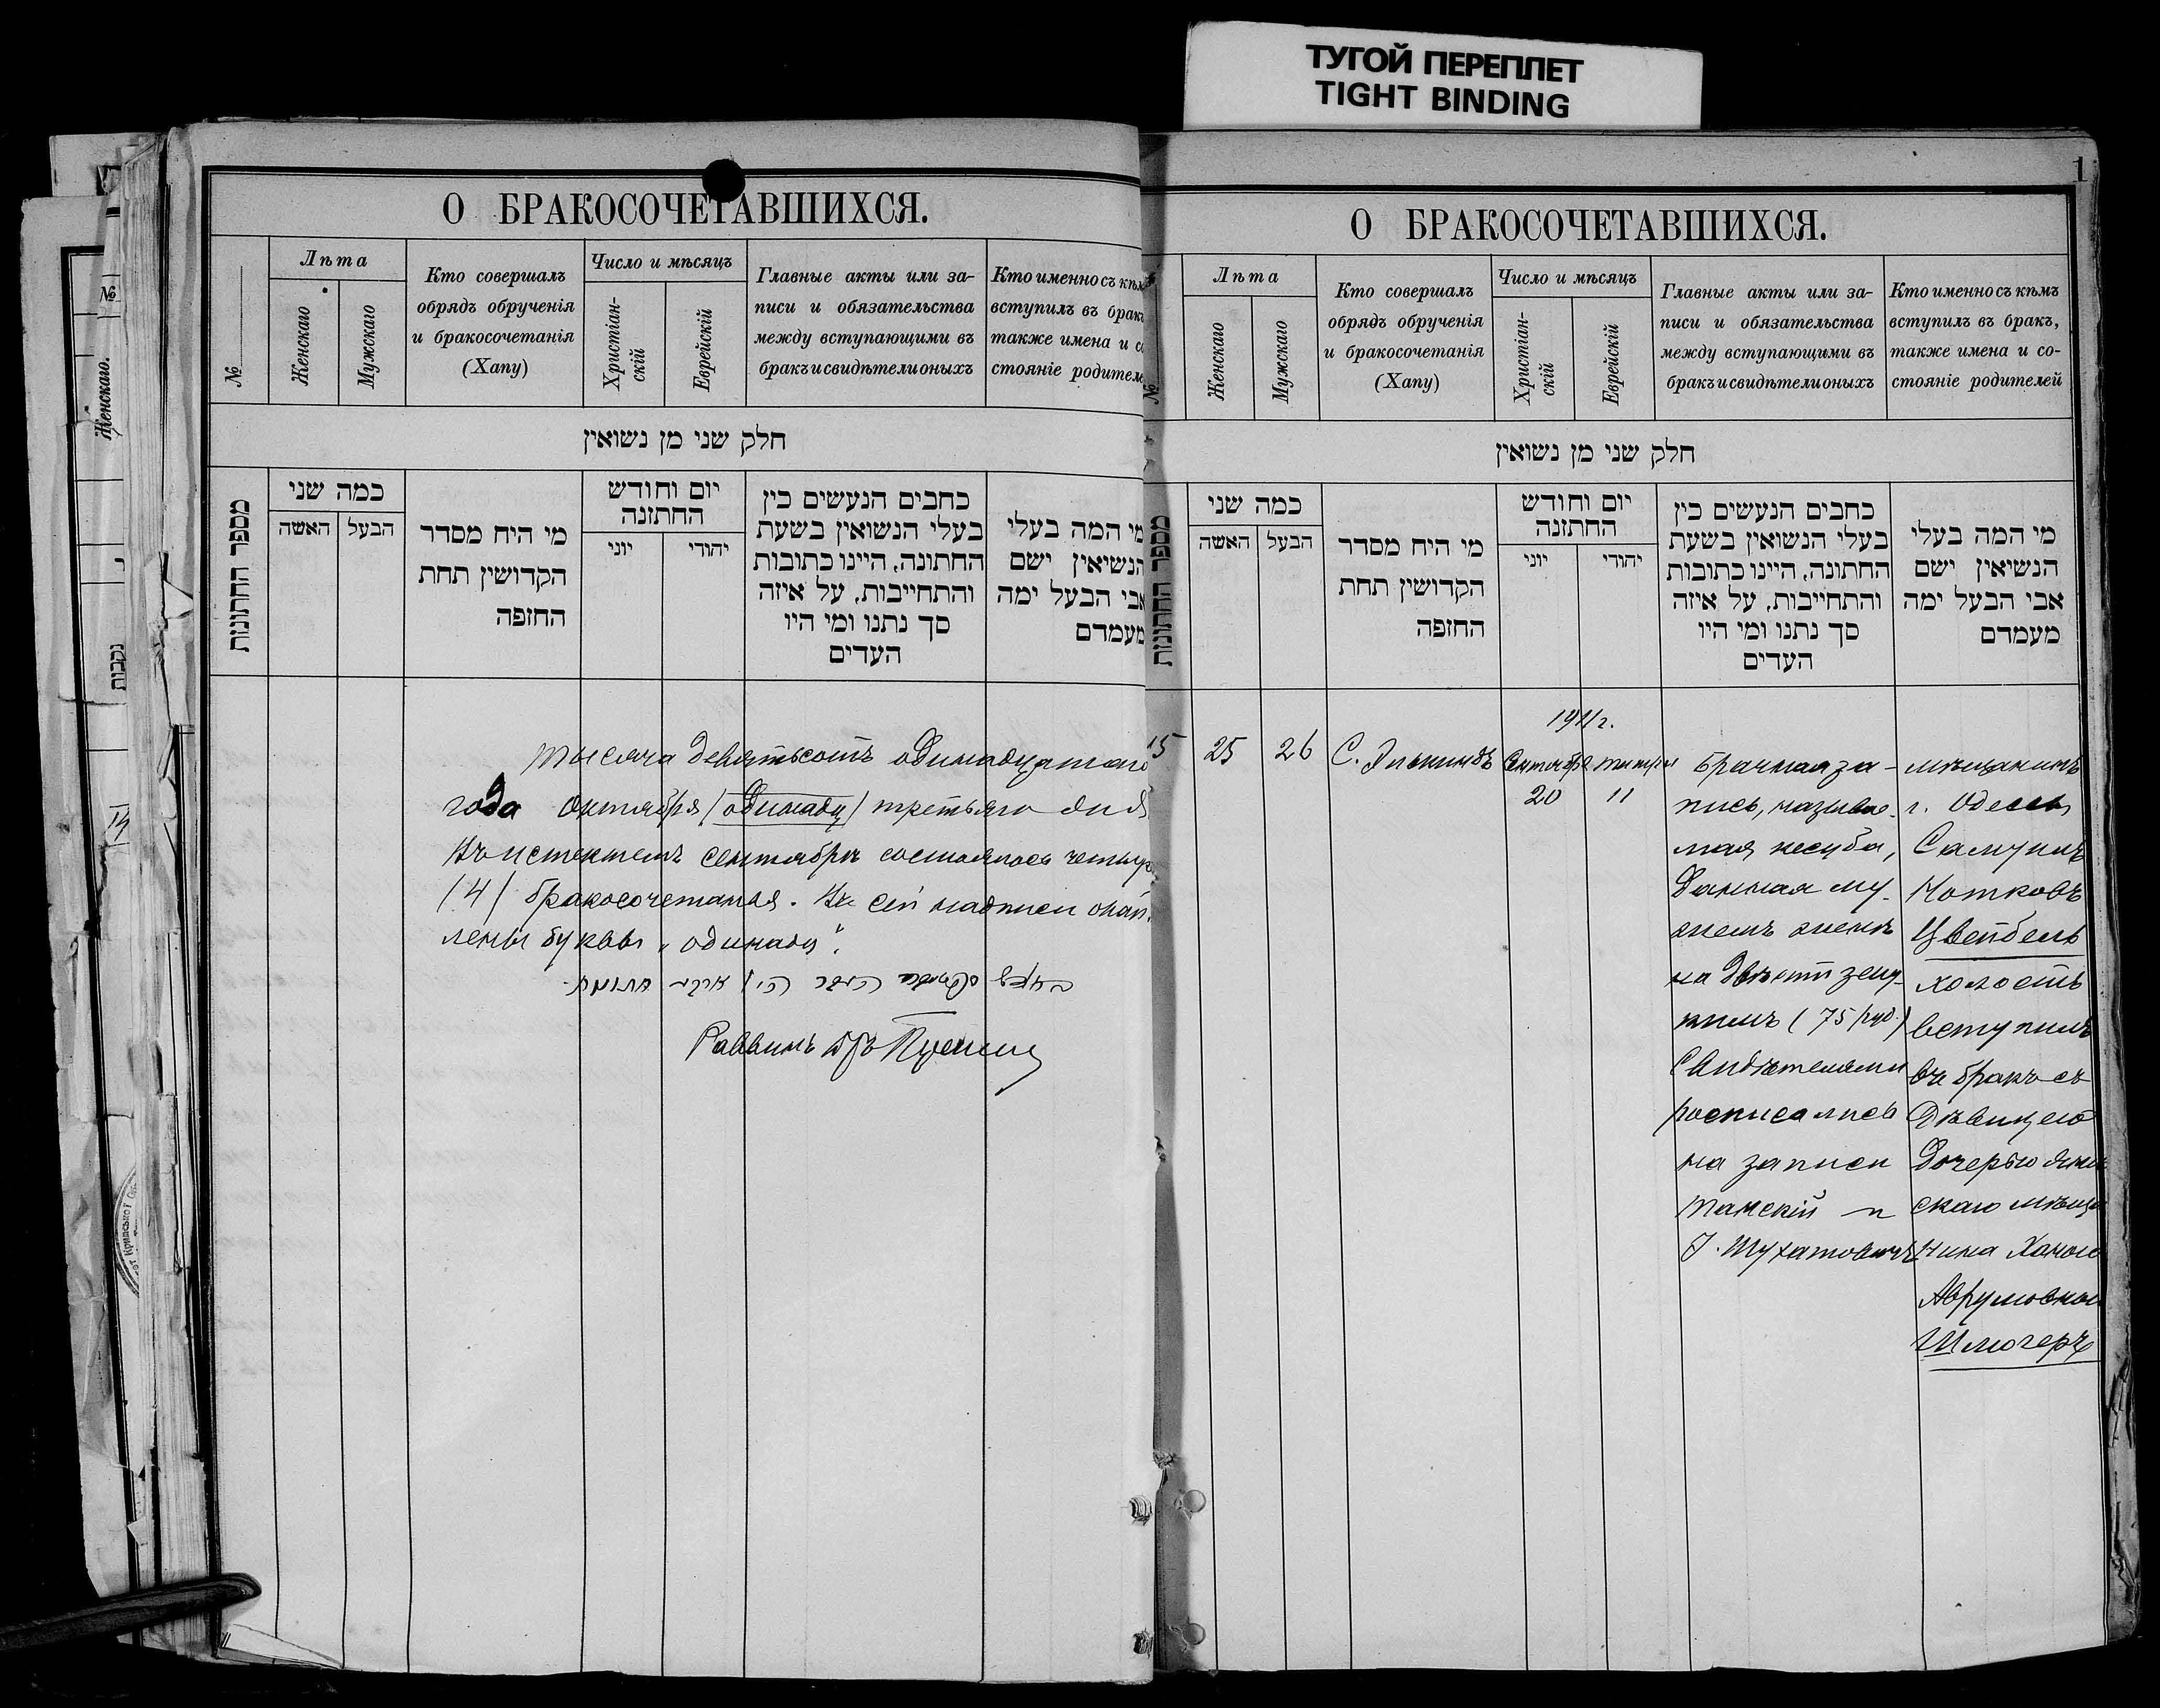 ТУГОЙ ПЕРЕПЛЕТ
TIGHT BINDING
О БРАКОСОЧЕТАВШИХСЯ.
№
Лѣта
Женскаго
Мужскаго
Кто совершалъ
обрядъ обрученія
и бракосочетанія
(Хапу)
Число и мѣсяцъ
Христіан-
скій
Еврейскій
Главные акты или за-
писи и обязательства
между вступающими въ
бракъ и свидѣтели оныхъ
Кто именно съ кѣмъ
вступилъ въ бракъ
также имена и со
стояніе родителе
חלק שני מן נשואין
מספר החתונות
כמה שני
האשה
הבעל
מי היח מסדר
הקדושין תחת
החזפה
יום וחודש
החתזנה
יוני
יהודי
כחבים הנעשים כין
בעלי הנשואין בשעת
החתונה, היינו כתובות
והתחייבות, על איזה
סך נתנו ומי היו
העדים
מי המה בעלי
הנשיאין ישם
אבי הבעל ימה
מעמדם
Тысяча девятьсотъ одинадцатаго
года октября (одинадц) третьяго дня
въ истекшемъ сентябрѣ состоялось четыре
(4) бракосочетанія. Въ сей надписи
лены буквы „одинадц".
Раввинъ
№
Женскаго.
14
נקבות
1
О БРАКОСОЧЕТАВШИХСЯ.
№
Лѣта
Женскаго
Мужскаго
Кто совершалъ
обрядъ обрученія
и бракосочетанія
(Хапу)
Число и мѣсяцъ
Христіан-
скій
Еврейскій
Главные акты или за-
писи и обязательства
между вступающими въ
бракъ и свидѣтели оныхъ
Кто именно съ кѣмъ
вступилъ въ бракъ,
также имена и со-
стояніе родителей
חלק שני מן נשואין
מספר החתונות
כמה שני
האשה
הבעל
מי היח מסדר
הקדושין תחת
החזפה
יום וחודש
החתזנה
יוני
יהודי
כחבים הנעשים כין
בעלי הנשואין בשעת
החתונה, היינו כתובות
והתחייבות, על איזה
סך נתנו ומי היו
העדים
מי המה בעלי
הנשיאין ישם
אבי הבעל ימה
מעמדם
15
25
26
С. Элькиндъ
1911 г.
Сентября
20
Тишри
11
Брачная за-
пись, называе-
мая кесуба,
данная му-
жемъ женѣ
на двѣсти зеку-
кимъ (75 руб.)
Свидѣтелями
росписались
на записи
Танскій и
Мѣщанинъ
г. Одессы
Самуилъ
Нотковъ
Цвейбель
холостъ
вступилъ
въ бракъ съ
дѣвицею
дочерью
скаго мѣща
нина Ханою
Аврумовною
Шлюгеръ